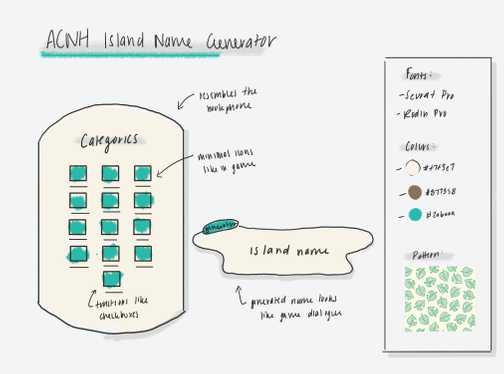 ACNH Island Name Generator
resembles the
nookphone
Categories
minimal icons
like in game
functions like
checkboxes
generator
Island name
generated name looks
like game dialogue
Fonts:
- Seurat Pro
- Rodin Pro
Colors:
#f7f3e7
Pattern